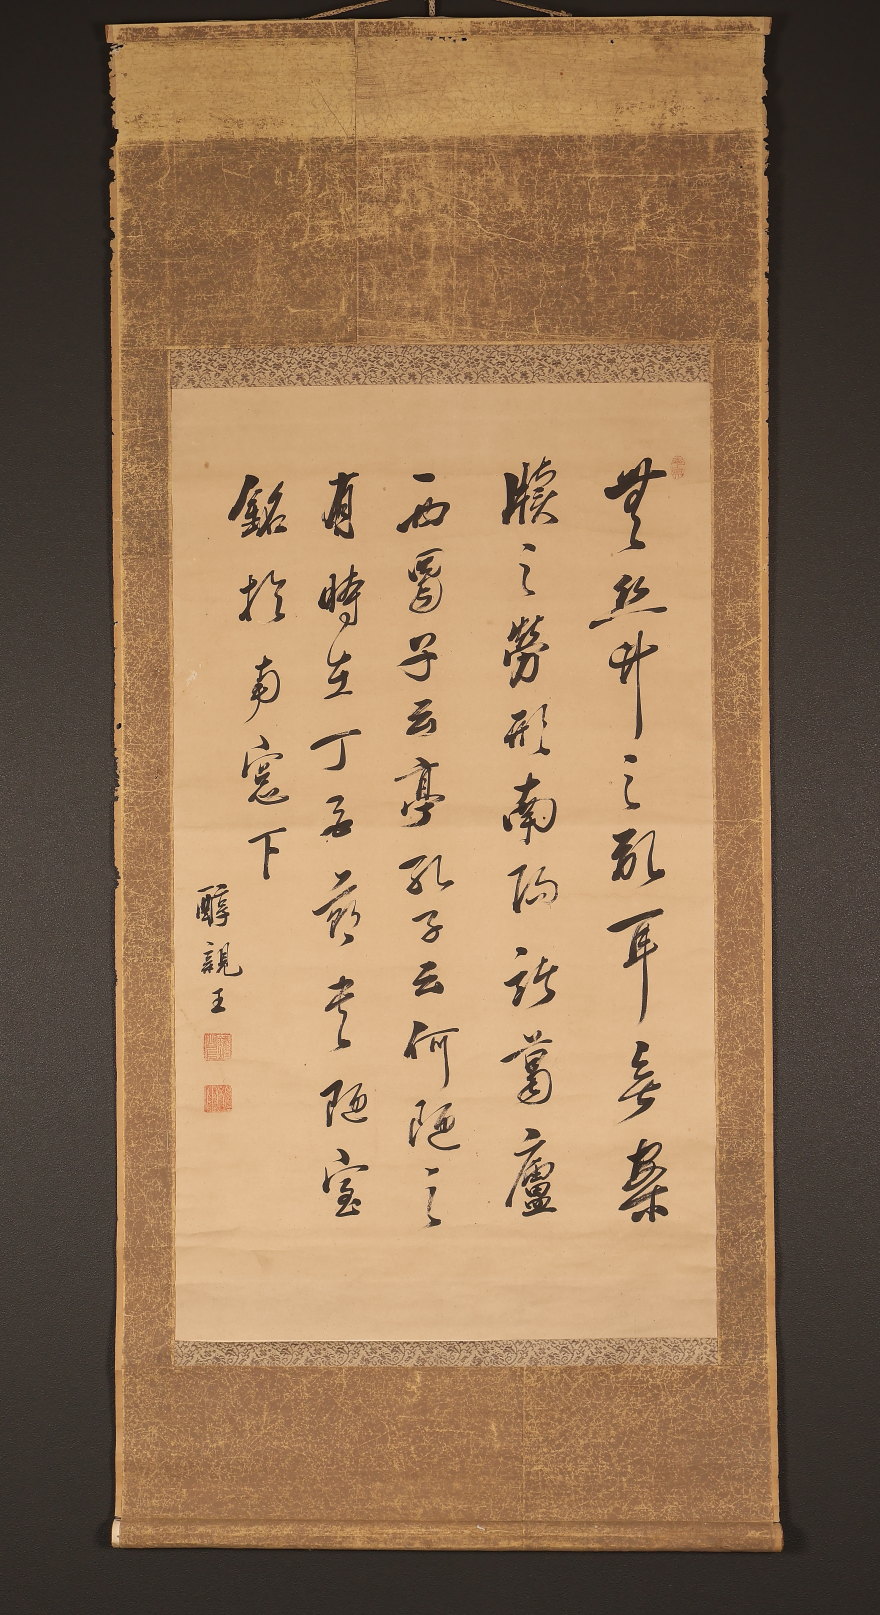 無絲竹之亂耳無案
牘之勞形南陽諸葛廬
西蜀子云亭孔子云何陋之
有時在丁陋室
銘於南窓下
醇親王